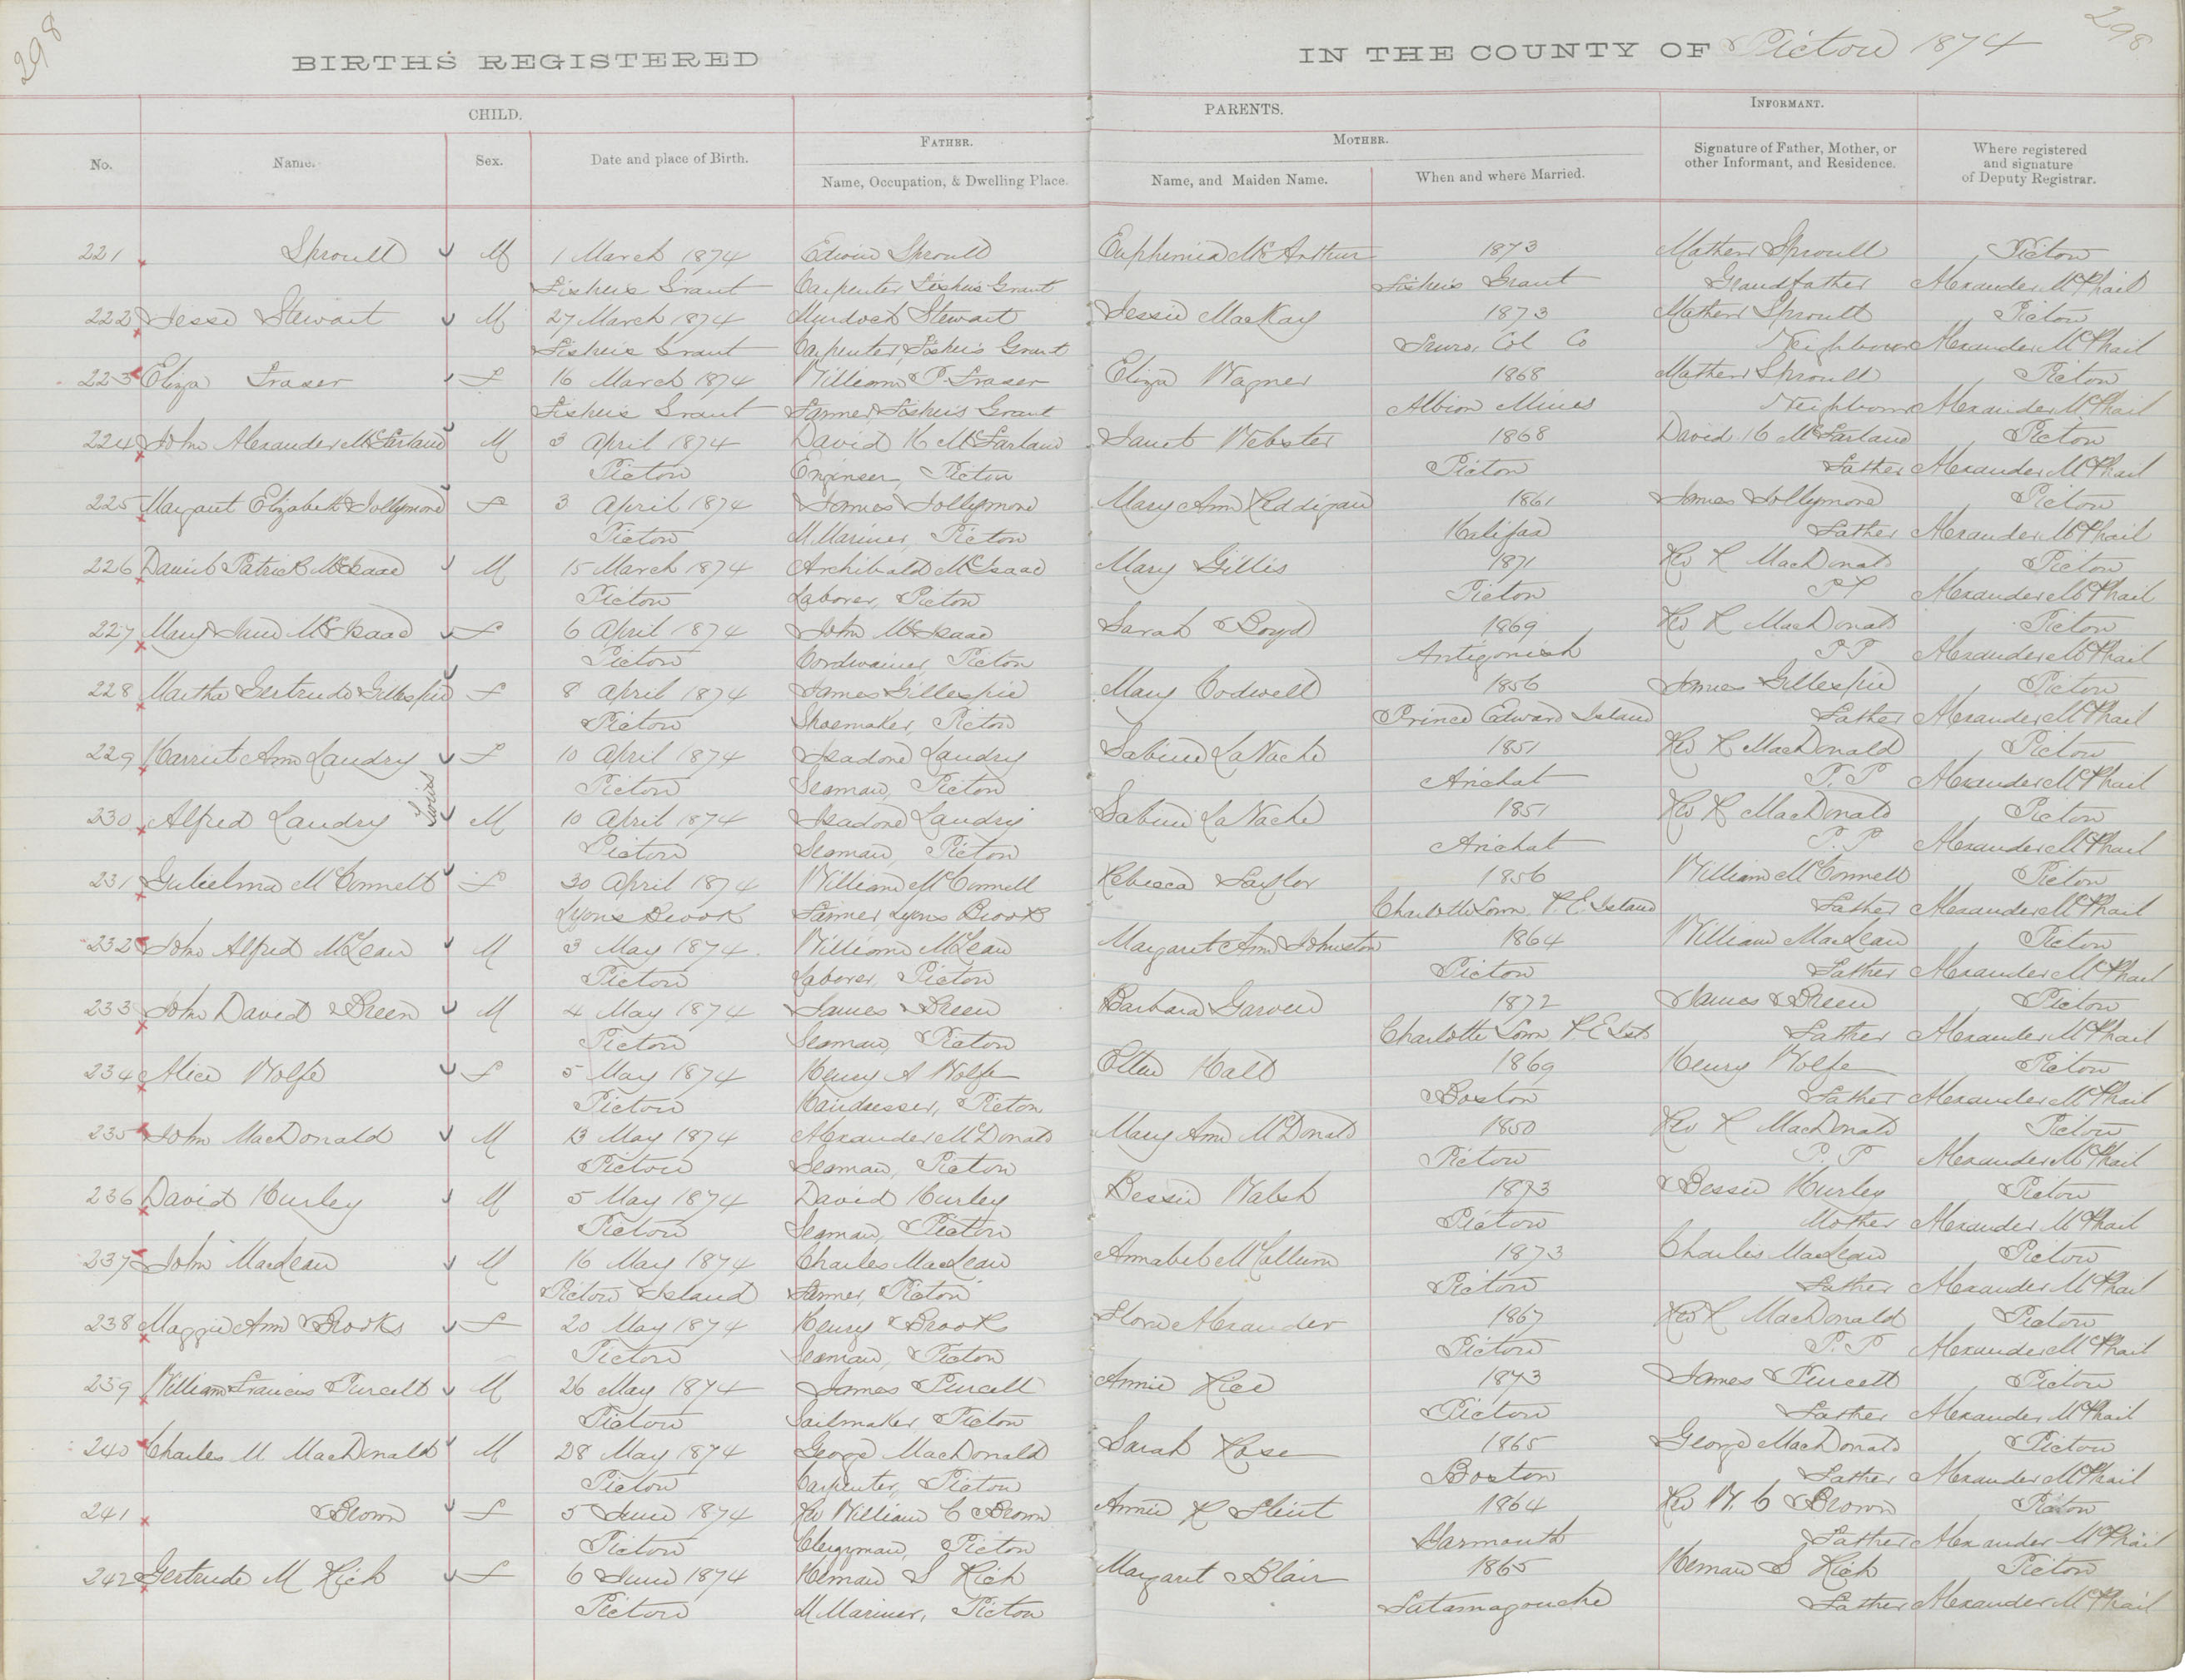 298
298
BIRTHS REGISTERED IN THE COUNTY OF Pictou 1874
CHILD. PARENTS. INFORMANT.
FATHER. MOTHER.
No. Name. Sex. Date and place of Birth. Name, Occupation, & Dwelling Place. Name, and Maiden Name. When and where Married. Signature of Father, Mother, or other Informant, and Residence. Where registered and signature of Deputy Registrar.
221 Sproull M 1 March 1874 Edwin Sproull Euphemia McArthur 1873 Mathew Sproull Pictou
Fishers Grant Carpenter Fishers Grant Fishers Grant Grandfather Alexander McPhail
222 Jesse Stewart M 27 March 1874 Murdoch Stewart Jessie MacKay 1873 Mathew Sproull Pictou
Fishers Grant Carpenter, Fishers Grant Truro, Col Co Neighbour Alexander McPhail
223 Eliza Fraser F 16 March 1874 William P. Fraser Eliza Wagner 1868 Mathew Sproull Pictou
Fishers Grant Farmer Fishers Grant Albion Mines Neighbour Alexander McPhail
224 John Alexander McFarland M 3 April 1874 David H McFarland Janet Webster 1868 David H McFarland Pictou
Pictou Engineer, Pictou Pictou Father Alexander McPhail
225 Margaret Elizabeth Jollymore F 3 April 1874 James Jollymore Mary Ann Reddigan 1861 James Jollymore Pictou
Pictou M. Mariner, Pictou Halifax Father Alexander McPhail
226 Daniel Patrick McIsaac M 15 March 1874 Archibald McIsaac Mary Gillis 1871 Rev R MacDonald Pictou
Pictou Laborer, Pictou Pictou PP Alexander McPhail
227 Mary Jane McIsaac F 6 April 1874 John McIsaac Sarah Boyd 1869 Rev R MacDonald Pictou
Pictou Cordwainer, Pictou Antigonish PP Alexander McPhail
228 Martha Gertrude Gillespie F 8 April 1874 James Gillespie Mary Codwell 1856 James Gillespie Pictou
Pictou Shoemaker, Pictou Prince Edward Island Father Alexander McPhail
229 Harriet Ann Landry F 10 April 1874 Isadore Landry Sabine LaVache 1851 Rev R MacDonald Pictou
Twins
Pictou Seaman, Pictou Arichat P. P Alexander McPhail
230 Alfred Landry M 10 April 1874 Isadore Landry Sabine LaVache 1851 Rev R MacDonald Pictou
Pictou Seaman, Pictou Arichat P. P Alexander McPhail
231 Gulielma McConnell F 30 April 1874 William McConnell Rebecca Taylor 1856 William McConnell Pictou
Lyons Brook Farmer Lyons Brook Charlotte Town P. E. Island Father Alexander McPhail
232 John Alfred McLean M 3 May 1874 William McLean Margaret Ann Johnston 1864 William MacLean Pictou
Pictou Laborer, Pictou Pictou Father Alexander McPhail
233 John David Breen M 4 May 1874 James Breen Barbara Garven 1872 James Breen Pictou
Pictou Seaman, Pictou Charlotte Town P. E Isld Father Alexander McPhail
234 Alice Wolfe F 5 May 1874 Henry A Wolfe Ellen Hall 1869 Henry Wolfe Pictou
Pictou Hairdresser, Pictou Boston Father Alexander McPhail
235 John MacDonald M 13 May 1874 Alexander McDonald Mary Ann McDonald 1850 Rev R MacDonald Pictou
Pictou Seaman, Pictou Pictou P. P Alexander McPhail
236 David Hurley M 5 May 1874 David Hurley Bessie Walsh 1873 Bessie Hurley Pictou
Pictou Seaman, Pictou Pictou Mother Alexander McPhail
237 John MacLean M 16 May 1874 Charles MacLean Annabel McCallum 1873 Charles MacLean Pictou
Pictou Island Farmer, Pictou Pictou Father Alexander McPhail
238 Maggie Ann Brooks F 20 May 1874 Henry Brooks Flora Alexander 1867 Rev R MacDonald Pictou
Pictou Seaman, Pictou Pictou P. P Alexander McPhail
239 William Francis Purcell M 26 May 1874 James Purcell Annie Rice 1873 James Purcell Pictou
Pictou Sailmaker Pictou Pictou Father Alexander McPhail
240 Charles M MacDonald M 28 May 1874 George MacDonald Sarah Rose 1865 George MacDonald Pictou
Pictou Carpenter, Pictou Boston Father Alexander McPhail
241 Brown F 5 June 1874 Rev William C Brown Annie R Flint 1864 Rev W. C Brown Pictou
Pictou Clergyman, Pictou Yarmouth Father Alexander McPhail
242 Gertrude M Rich F 6 June 1874 Heman S Rich Margaret Blair 1865 Heman S Rich Pictou
Pictou M. Mariner, Pictou Tatamagouche Father Alexander McPhail